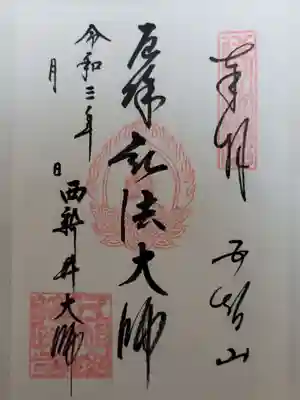 奉拝
五智山
厄除弘法大師
令和三年
月 日
西新井大師